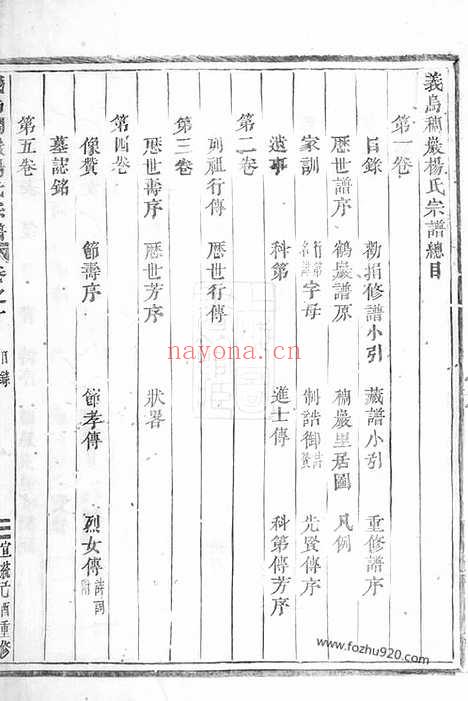 義烏稠巖楊氏宗譜總目
第一卷
目錄 勸捐修譜小引 藏譜小引 重修譜序
歷世譜序 鶴巖譜原 稠巖里居圖 凡例
家訓 字母 制誥御 先賢傳序
遺事 科第 進士傳 科第傳芳序
第二卷
列祖行傳 歷世行傳
第三卷
歷世壽序 歷世芳序 狀畧
第四卷
像贊 節壽序 節孝傳 烈女傳
墓誌銘
第五卷
目錄
宣統元酉重修
nayona.cn
www.fozhu920.com